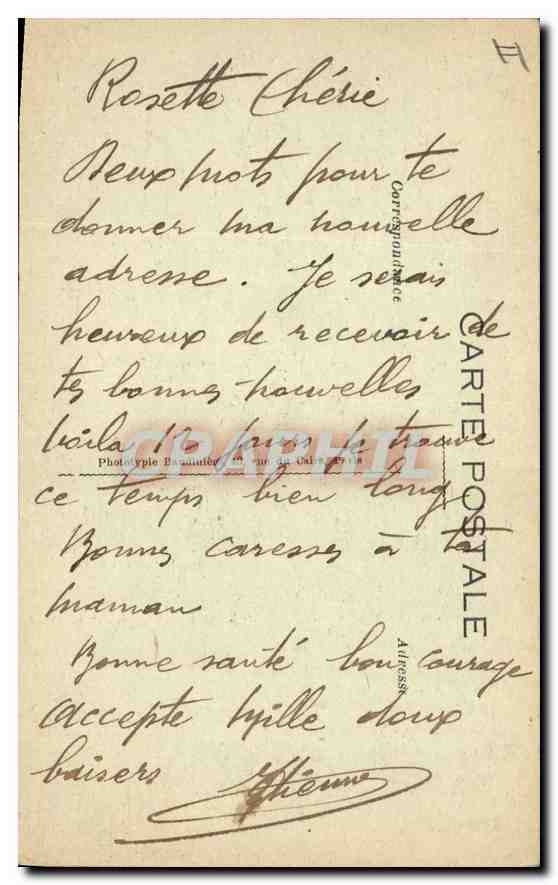 II
Rosette Chérie
Deux mots pour te
donner ma nouvelle
adresse. Je serais
heureux de recevoir de
tes bonnes nouvelles
voila 10 jours je trouve
ce temps bien long
Bonnes caresses à ta
maman
Bonne santé bon courage
Accepte mille doux
baisers Etienne
Correspondance
CARTE POSTALE
Adresse
Phototypie Baudinière, rue du Caire, Paris
CPAPHIL